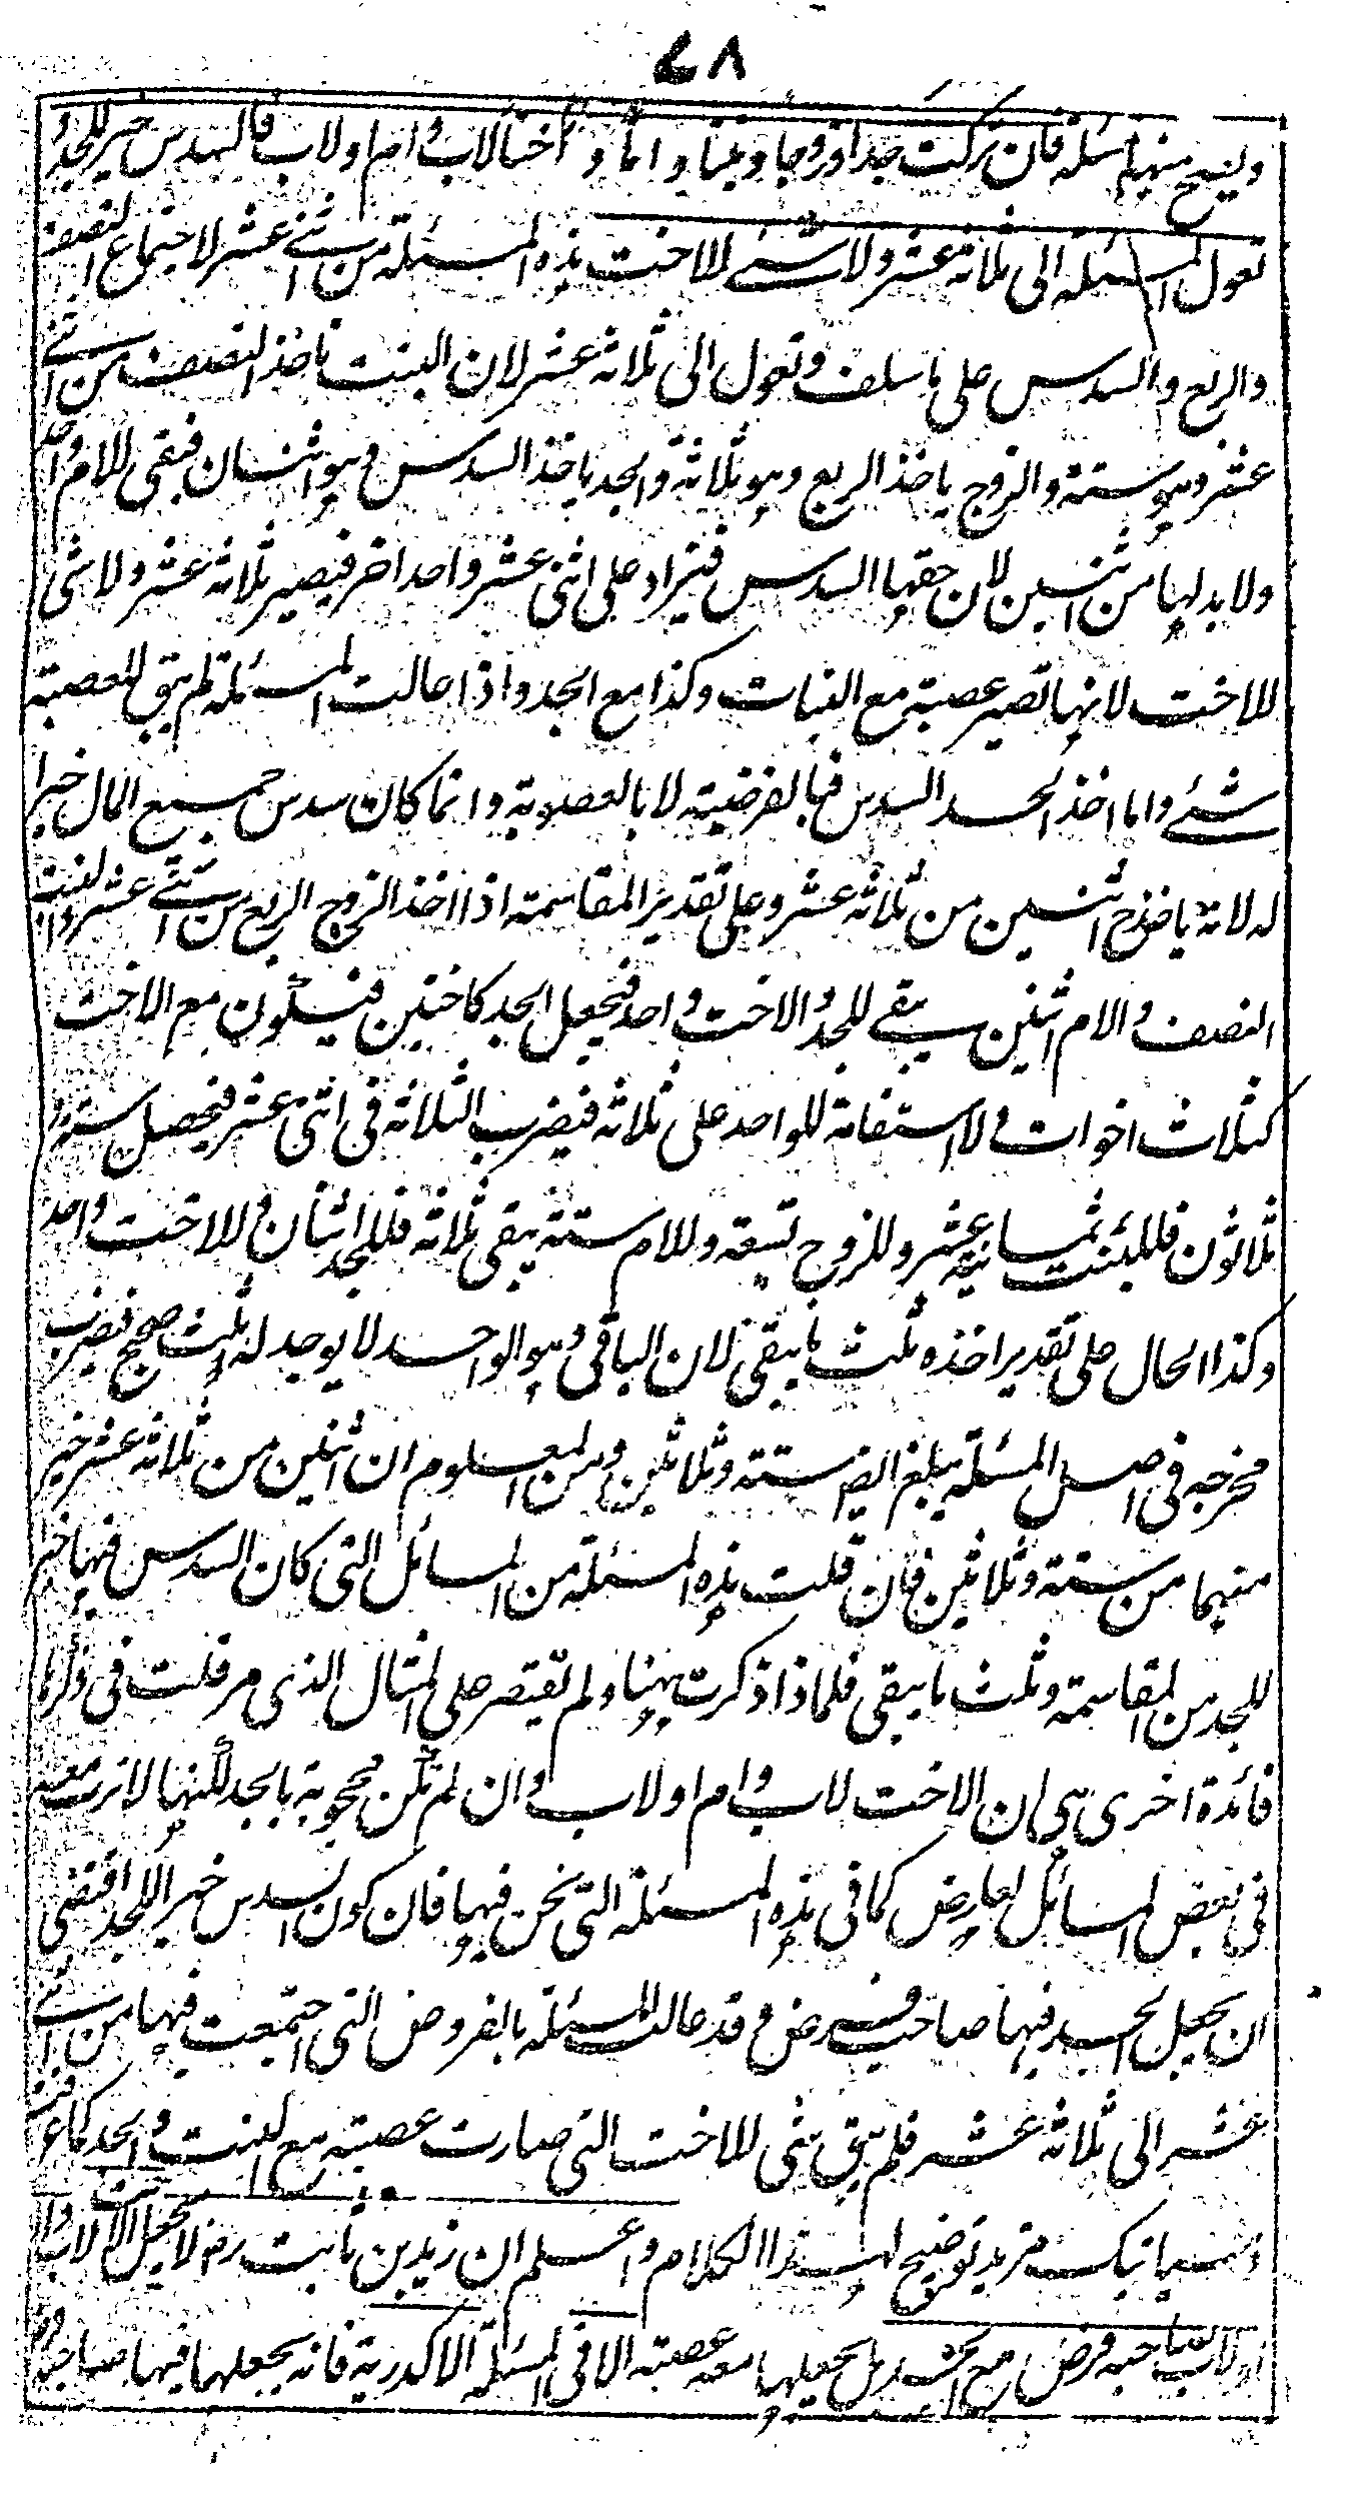 ٧٨
ويصح منها المسئلة فان تركت جدا وزوجا وبنتا واما واختا لاب وام او لاب فالسدس خير للجد و
تعول المسئلة الى ثلاثة عشر ولا شئ للاخت هذه المسئلة من اثنى عشر لاجتماع النصف
والربع والسدس على ما سلف وتعول الى ثلاثة عشر لان البنت تاخذ النصف من اثنى
عشر وهو ستة والزوج ياخذ الربع وهو ثلاثة والجد ياخذ السدس وهو اثنان فبقى للام واحد
ولابد لها من اثنين لان حقها السدس فيزاد على اثنى عشر واحد اخر فيصير ثلاثة عشر ولا شئ
للاخت لانها تصير عصبة مع البنات وكذا مع الجد واذا عالت المسئلة لم يبق للعصبة
شئ واما اخذ الجد السدس فبالفرضية لا بالعصوبة وانما كان سدس جميع المال خيرا
له لانه ياخذ ح اثنين من ثلاثة عشر وعلى تقدير المقاسمة اذا اخذ الزوج الربع من اثنى عشر والبنت
النصف والام اثنين يبقى للجد والاخت واحد فيجعل الجد كاختين فيكون مع الاخت
كثلاث اخوات ولا استقامة للواحد على ثلاثة فيضرب الثلاثة فى اثنى عشر فيحصل ستة و
ثلاثون فللبنت ثمانية عشر وللزوج تسعة وللام ستة يبقى ثلاثة فللجد اثنان وللاخت واحد
وكذا الحال على تقدير اخذه ثلث ما يبقى لان الباقى وهو الواحد لا يوجد له ثلث صحيح فيضرب
مخرجه فى اصل المسئلة يبلغ ايضا ستة وثلاثين ومن المعلوم ان اثنين من ثلاثة عشر خير
منهما من ستة وثلاثين فان قلت هذه المسئلة من المسائل التى كان السدس فيها خيرا
للجد من المقاسمة وثلث ما يبقى فلماذا ذكرت ههنا ولم يقتصر على المثال الذى مر قلت فى ذكرها
فائدة اخرى هى ان الاخت لاب وام او لاب وان لم تكن محجوبة بالجد لكنها لا ترث معه
فى بعض المسائل لعارض كما فى هذه المسئلة التى نحن فيها فان كون السدس خيرا للجد اقتضى
ان يجعل الجد فيها صاحب فرض وقد عالت المسئلة بالفروض التى اجتمعت فيها من اثنى
عشر الى ثلاثة عشر فلم يبق شئ للاخت التى صارت عصبة مع البنت والجد كما عرفت
وسياتيك مزيد توضيح لهذا الكلام واعلم ان زيد بن ثابت رض لا يجعل الاخت لاب وام
او لاب صاحبة فرض مع الجد بل يجعلها معه عصبة الا فى المسئلة الاكدرية فانه يجعلها فيها صاحبة فرض